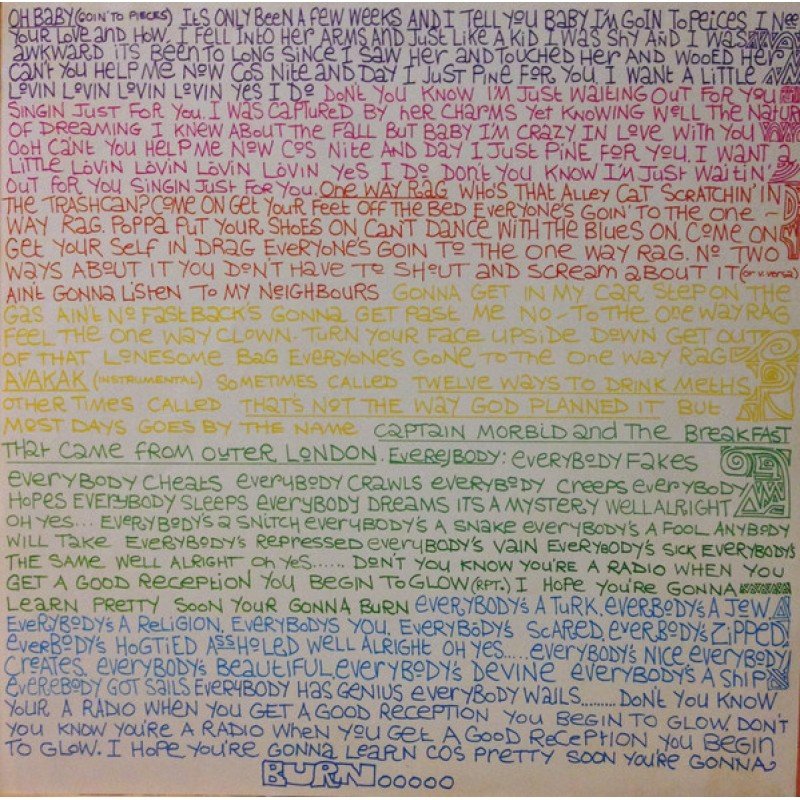 OH BABY (GOIN' TO PIECES) ITS ONLY BEEN A FEW WEEKS AND I TELL YOU BABY I'M GOIN TO PEICES I NEED
YOUR LOVE AND HOW. I FELL INTO HER ARMS AND JUST LIKE A KID I WAS SHY AND I WAS
AWKWARD ITS BEEN TO LONG SINCE I SAW HER AND TOUCHED HER AND WOOED HER
CAN'T YOU HELP ME NOW COS NITE AND DAY I JUST PINE FOR YOU I WANT A LITTLE
LOVIN LOVIN LOVIN LOVIN YES I DO DON'T YOU KNOW I'M JUST WAITING OUT FOR YOU
SINGIN JUST FOR YOU. I WAS CAPTURED BY HER CHARMS YET KNOWING WELL THE NATURE
OF DREAMING I KNEW ABOUT THE FALL BUT BABY I'M CRAZY IN LOVE WITH YOU
OOH CAN'T YOU HELP ME NOW COS NITE AND DAY I JUST PINE FOR YOU. I WANT A
LITTLE LOVIN LOVIN LOVIN LOVIN YES I DO DON'T YOU KNOW I'M JUST WAITIN'
OUT FOR YOU SINGIN JUST FOR YOU. ONE WAY RAG WHO'S THAT ALLEY CAT SCRATCHIN' IN
THE TRASHCAN? COME ON GET YOUR FEET OFF THE BED EVERYONE'S GOIN' TO THE ONE -
WAY RAG. POPPA PUT YOUR SHOES ON CAN'T DANCE WITH THE BLUES ON. COME ON
GET YOUR SELF IN DRAG EVERYONE'S GOIN TO THE ONE WAY RAG. NO TWO
WAYS ABOUT IT YOU DON'T HAVE TO SHOUT AND SCREAM ABOUT IT (OR V. VERSA)
AIN'T GONNA LISTEN TO MY NEIGHBOURS GONNA GET IN MY CAR STEP ON THE
GAS AIN'T NO FASTBACK'S GONNA GET PAST ME NO - TO THE ONE WAY RAG
FEEL THE ONE WAY CLOWN. TURN YOUR FACE UPSIDE DOWN GET OUT
OF THAT LONESOME BAG EVERYONE'S GONE TO THE ONE WAY RAG
AVAKAK (INSTRUMENTAL) SOMETIMES CALLED TWELVE WAYS TO DRINK METHS
OTHER TIMES CALLED THAT'S NOT THE WAY GOD PLANNED IT BUT
MOST DAYS GOES BY THE NAME CAPTAIN MORBID AND THE BREAKFAST
THAT CAME FROM OUTER LONDON. EVEREJBODY: EVERYBODY FAKES
EVERYBODY CHEATS EVERYBODY CRAWLS EVERYBODY CREEPS EVERYBODY
HOPES EVERYBODY SLEEPS EVERYBODY DREAMS ITS A MYSTERY WELL ALRIGHT
OH YES... EVERYBODY'S A SNITCH EVERYBODY'S A SNAKE EVERYBODY'S A FOOL ANYBODY
WILL TAKE EVERYBODY'S REPRESSED EVERYBODY'S VAIN EVERYBODY'S SICK EVERYBODY'S
THE SAME WELL ALRIGHT OH YES...... DON'T YOU KNOW YOU'RE A RADIO WHEN YOU
GET A GOOD RECEPTION YOU BEGIN TO GLOW (RPT.) I HOPE YOU'RE GONNA
LEARN PRETTY SOON YOUR GONNA BURN EVERYBODY'S A TURK, EVERBODY'S A JEW,
EVERYBODY'S A RELIGION, EVERYBODYS YOU, EVERYBODY'S SCARED, EVERBODY'S ZIPPED,
EVERBODY'S HOGTIED ASSHOLED WELL ALRIGHT OH YES..... EVERYBODY'S NICE EVERYBODY
CREATES, EVERYBODY'S BEAUTIFUL, EVERYBODY'S DEVINE EVERYBODY'S A SHIP
EVEREBODY GOT SAILS EVERYBODY HAS GENIUS EVERYBODY WAILS......... DON'T YOU KNOW
YOUR A RADIO WHEN YOU GET A GOOD RECEPTION YOU BEGIN TO GLOW. DON'T
YOU KNOW YOU'RE A RADIO WHEN YOU GET A GOOD RECEPTION YOU BEGIN
TO GLOW. I HOPE YOU'RE GONNA LEARN COS PRETTY SOON YOU'RE GONNA
BURN ooooo